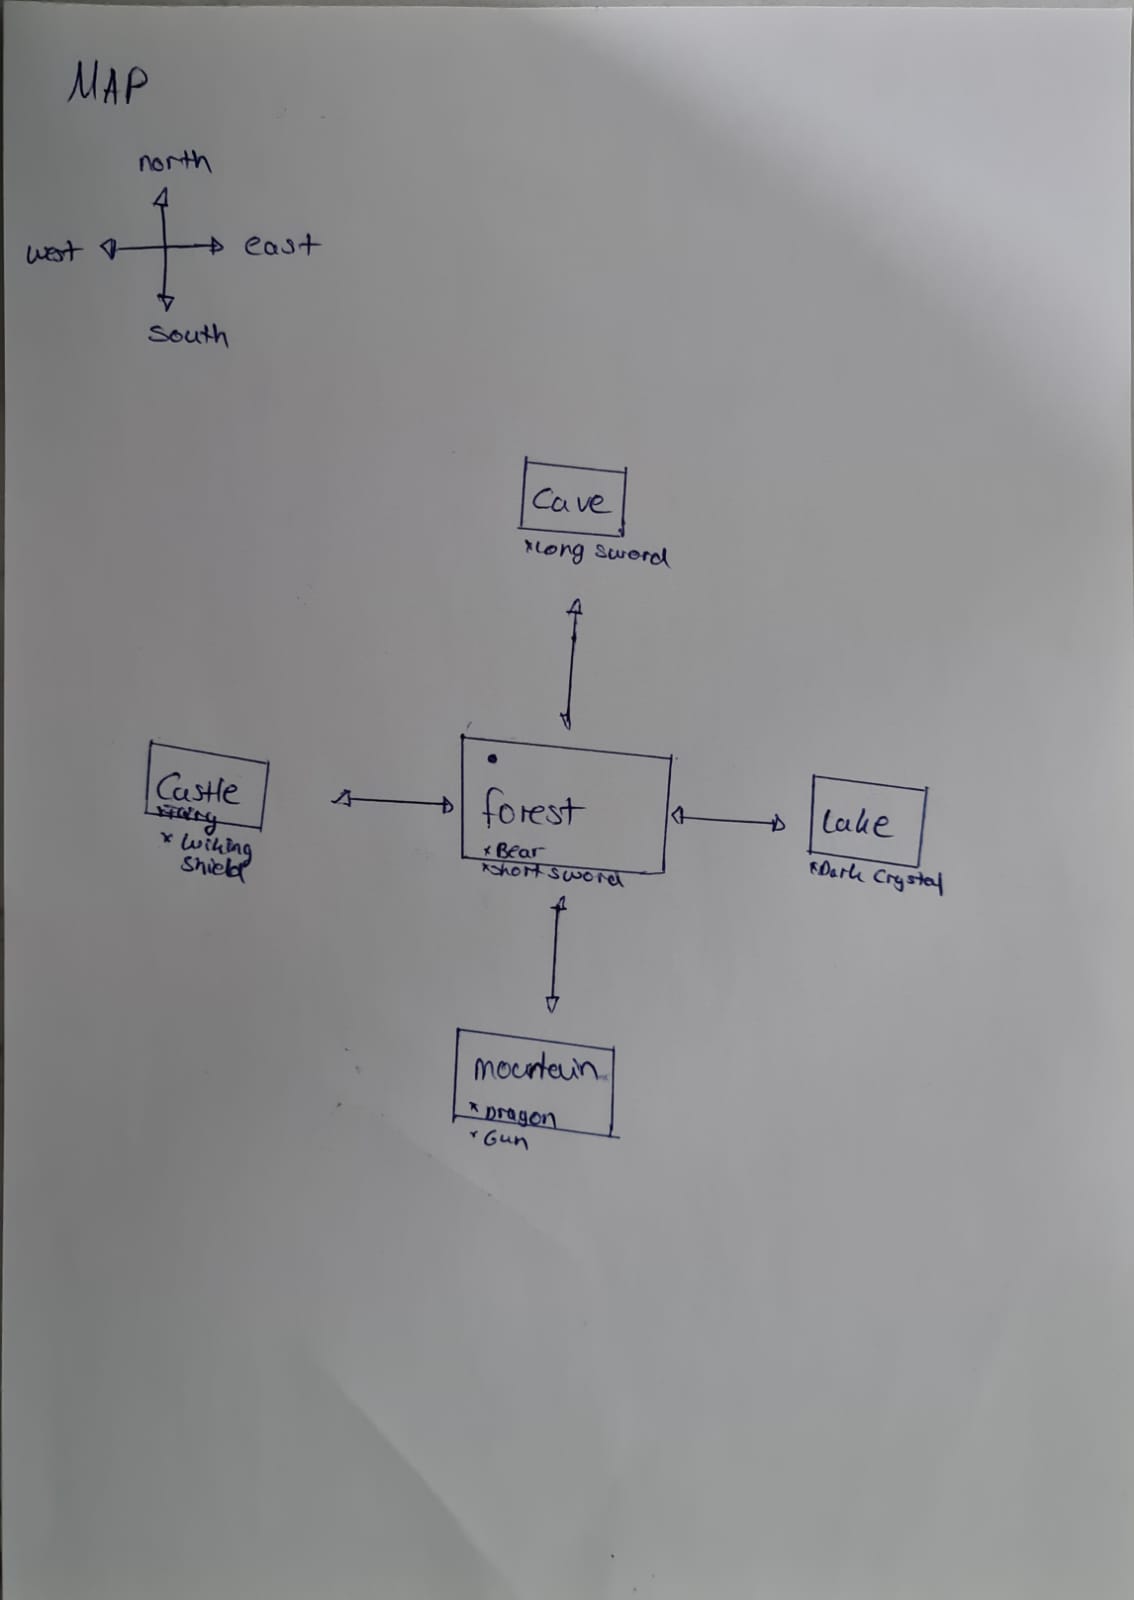 MAP
north
west
east
south
Cave
*Long sword
Castle
* Wiking
Shield
forest
* Bear
*short sword
Lake
*Dark Crystal
mountain
* Dragon
* Gun